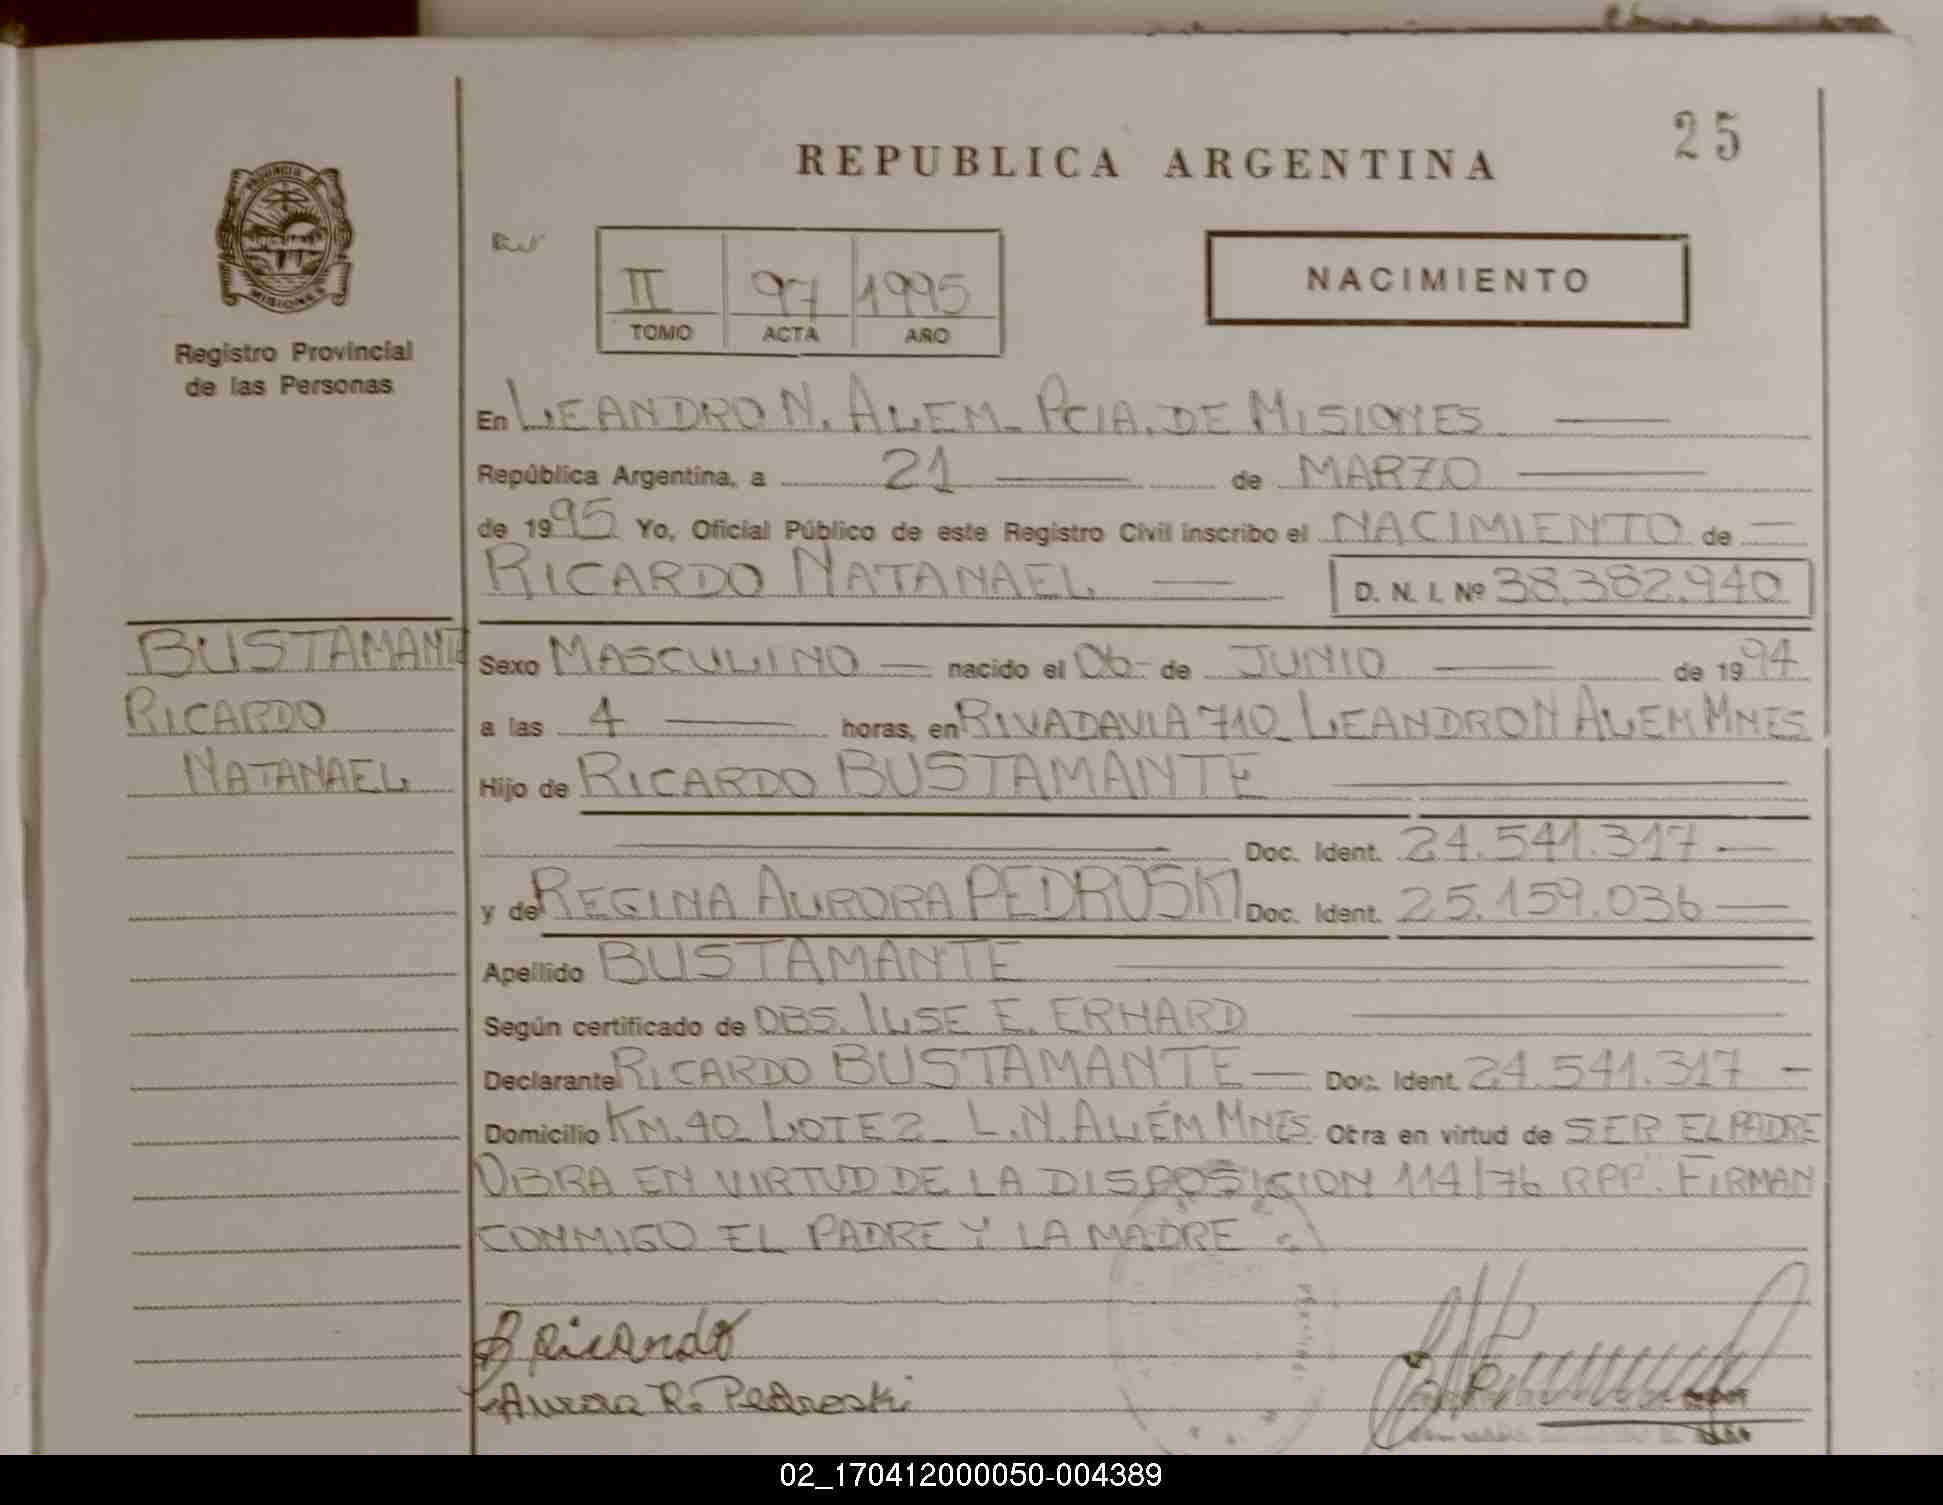 25
REPUBLICA ARGENTINA
PROVINCIA DE
MISIONES
Registro Provincial
de las Personas
II 97 1995
TOMO ACTA AÑO
NACIMIENTO
En LEANDRO N. ALEM - PCIA. DE MISIONES
República Argentina, a 21 de MARZO
de 1995 Yo, Oficial Público de este Registro Civil inscribo el NACIMIENTO de
RICARDO NATANAEL D. N. I. Nº 38.382.940
BUSTAMANTE
RICARDO
NATANAEL
Sexo MASCULINO nacido el 06 de JUNIO de 1994
a las 4 horas, en RIVADAVIA 710 - LEANDRO N ALEM MNES
Hijo de RICARDO BUSTAMANTE
Doc. Ident. 24.541.317
y de REGINA AURORA PEDROSKI Doc. Ident. 25.159.036
Apellido BUSTAMANTE
Según certificado de OBS. ILSE E. ERHARD
Declarante RICARDO BUSTAMANTE Doc. Ident. 24.541.317
Domicilio KM. 40 - LOTE 2 - L.N. ALÉM MNES. Otra en virtud de SER EL PADRE
OBRA EN VIRTUD DE LA DISPOSICION 114/76 RPP. FIRMAN
CONMIGO EL PADRE Y LA MADRE
B Ricardo
Aurora R. Pedroski
02_170412000050-004389